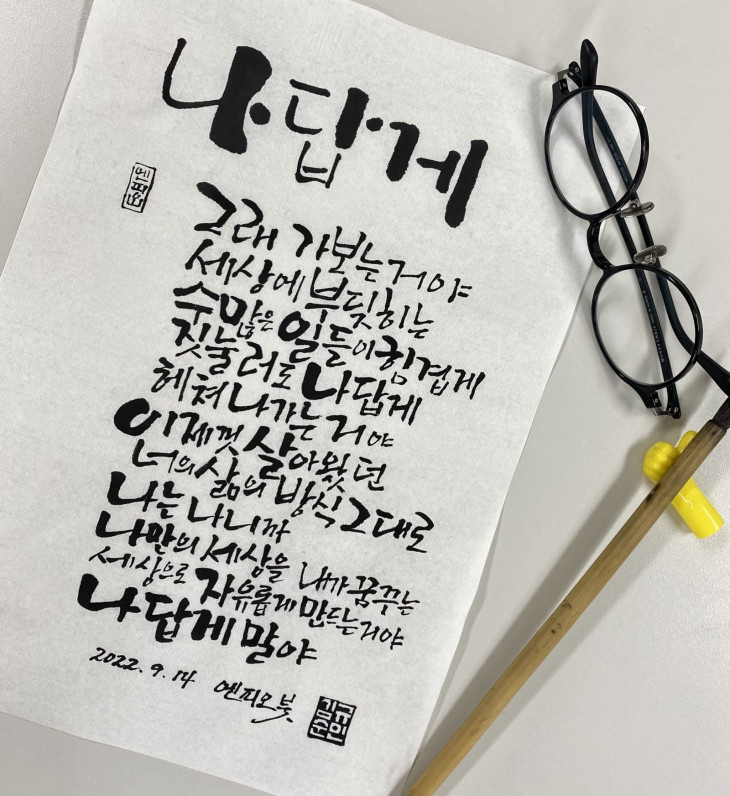 나답게
엔피오
그래 가보는거야
세상에 부딪히는
수많은 일들이 힘겹게
짓눌러도 나답게
헤쳐나가는거야
이제껏 살아왔던
너의 삶의 방식 그대로
나는 나니까
나만의 세상을 내가 꿈꾸는
세상으로 자유롭게 만드는거야
나답게 말야
2022. 9. 14 엔피오붓